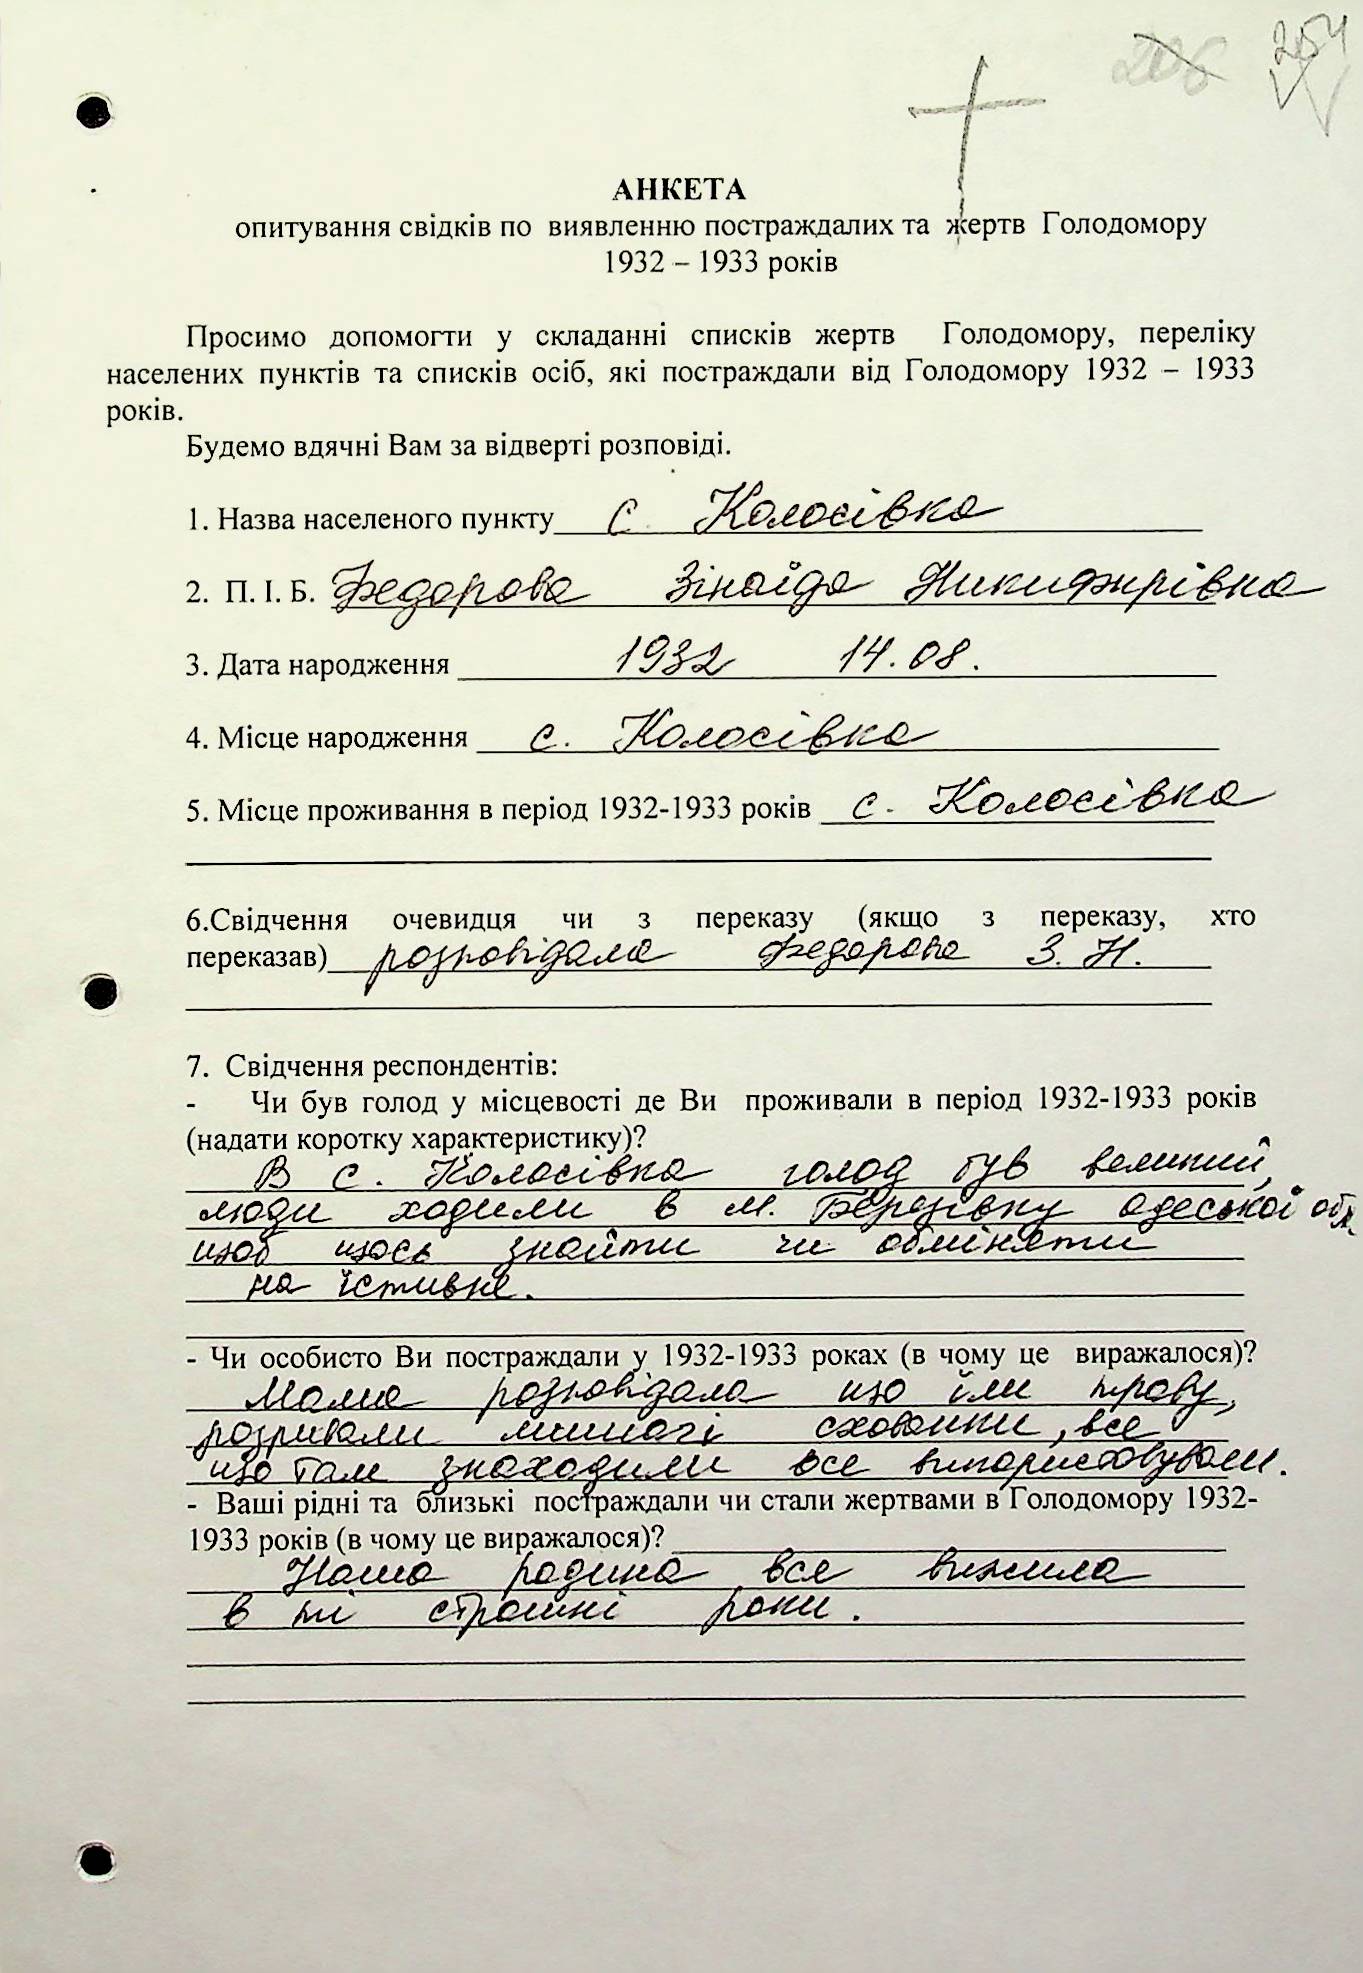 254
206
АНКЕТА
опитування свідків по виявленню постраждалих та жертв Голодомору
1932 – 1933 років
Просимо допомогти у складанні списків жертв Голодомору, переліку
населених пунктів та списків осіб, які постраждали від Голодомору 1932 – 1933
років.
Будемо вдячні Вам за відверті розповіді.
1. Назва населеного пункту с. Колосівка
2. П. І. Б. Федорова Зінаїда Никифирівна
3. Дата народження 1932 14.08.
4. Місце народження с. Колосівка
5. Місце проживання в період 1932-1933 років с. Колосівка
6.Свідчення очевидця чи з переказу (якщо з переказу, хто
переказав) розповідала Федорова З. Н.
7. Свідчення респондентів:
- Чи був голод у місцевості де Ви проживали в період 1932-1933 років
(надати коротку характеристику)?
В с. Колосівка голод був великий,
люди ходили в м. Березівку одеської обл
щоб щось знайти чи обміняти
на їстивне.
- Чи особисто Ви постраждали у 1932-1933 роках (в чому це виражалося)?
Мама розповідала що їли траву,
розривали мишачі схованки, все
що там знаходили все використовували.
- Ваші рідні та близькі постраждали чи стали жертвами в Голодомору 1932-
1933 років (в чому це виражалося)?
Наша родина вся вижила
в ті страшні роки.